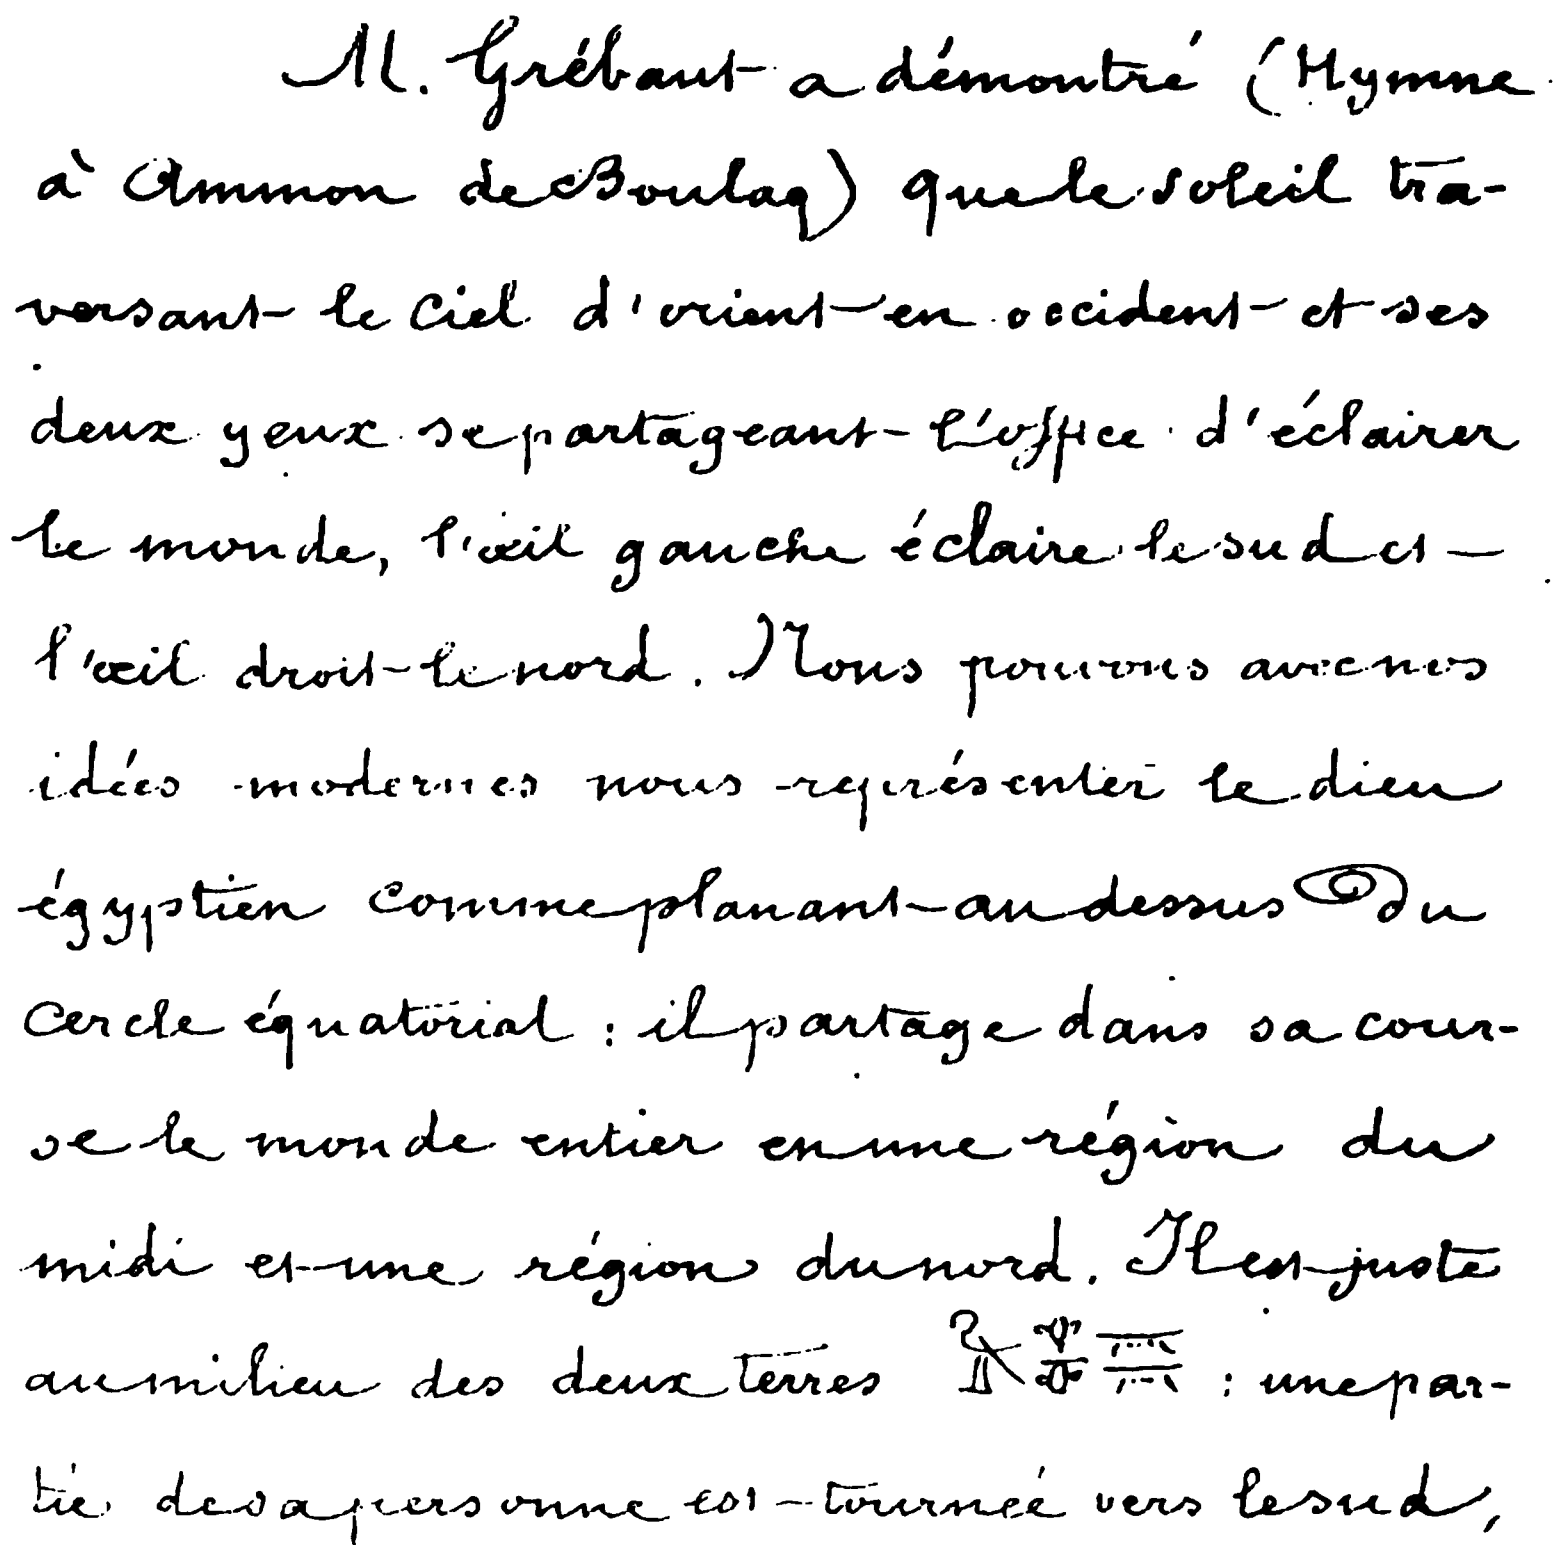 M. Grébaut a démontré (Hymne
à Ammon de Boulaq) que le soleil tra-
versant le ciel d'orient en occident et ses
deux yeux se partageant l'office d'éclairer
le monde, l'œil gauche éclaire le sud et
l'œil droit le nord. Nous pouvons avec nos
idées modernes nous représenter le dieu
égyptien comme planant au dessus du
cercle équatorial : il partage dans sa cour-
se le monde entier en une région du
midi et une région du nord. Il est juste
au milieu des deux terres : une par-
tie de sa personne est tournée vers le sud,